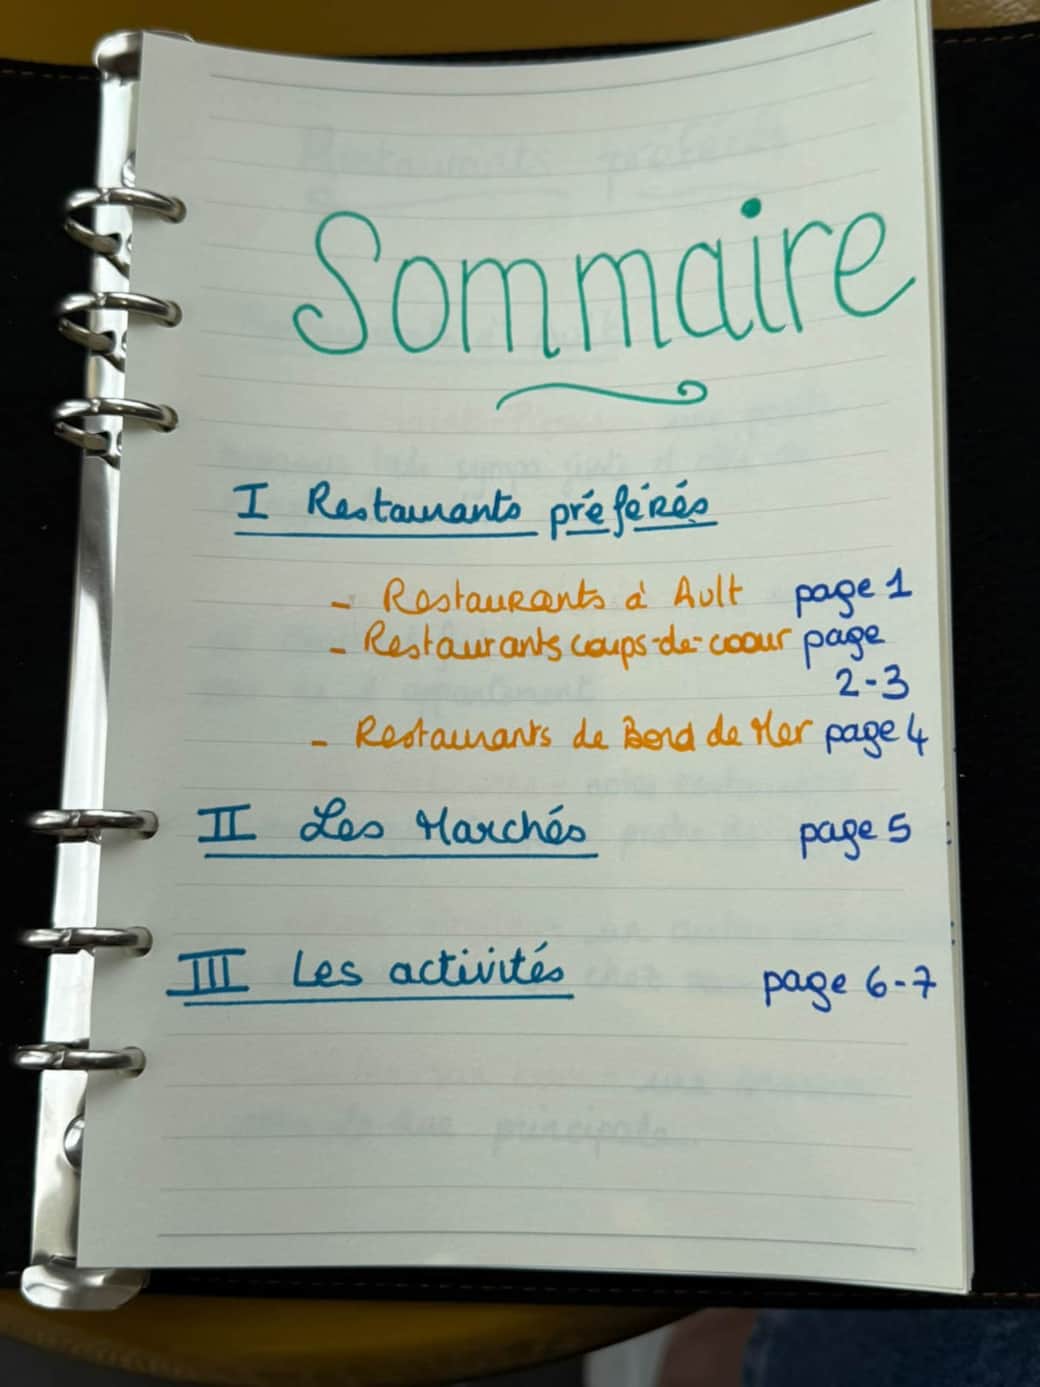 Sommaire
I Restaurants préférés
- Restaurants à Ault page 1
- Restaurants coups-de-coeur page
2-3
- Restaurants de Bord de Mer page 4
II Les Marchés page 5
III Les activités page 6-7